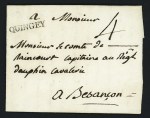 a Monsieur
QUINGEY
4
Monsieur le comte de
raincourt capitaine au Regt
dauphin cavalerie
a Besançon